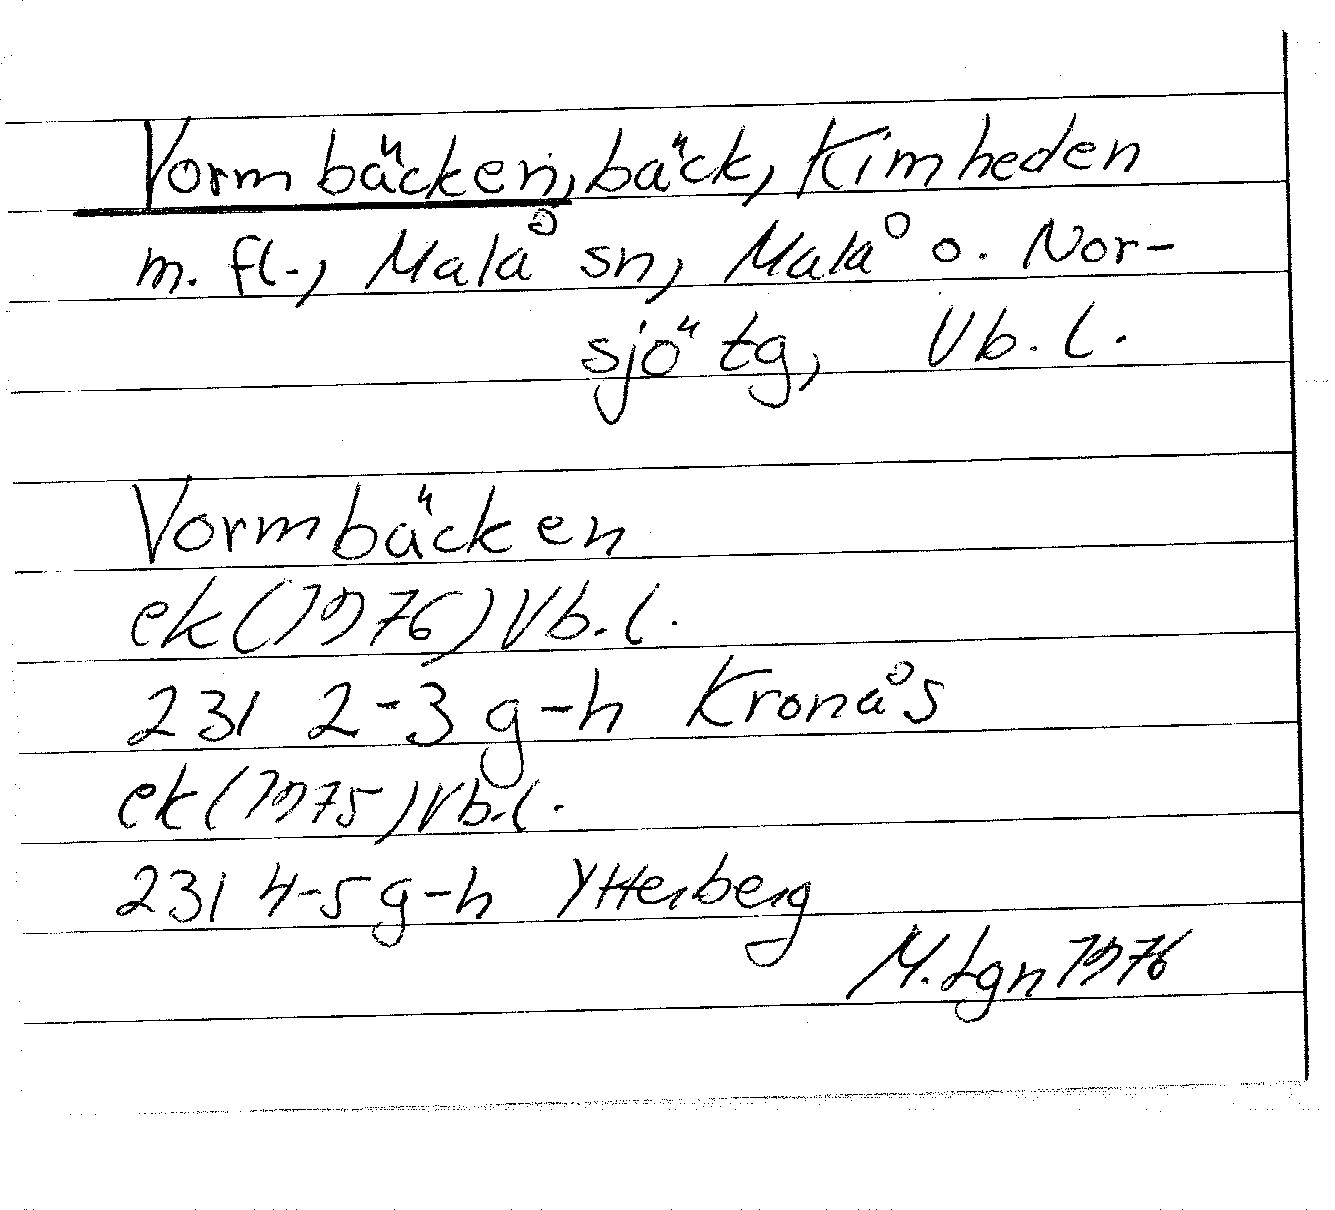 Vormbäcken, bäck, Kimheden
m. fl., Malå sn, Malå o. Nor-
sjö tg, Vb. l.
Vormbäcken
ek (1976) Vb. l.
231 2-3 g-h Kronås
ek (1975) Vb. l.
231 4-5 g-h Ytterberg
M. Lgn 1976